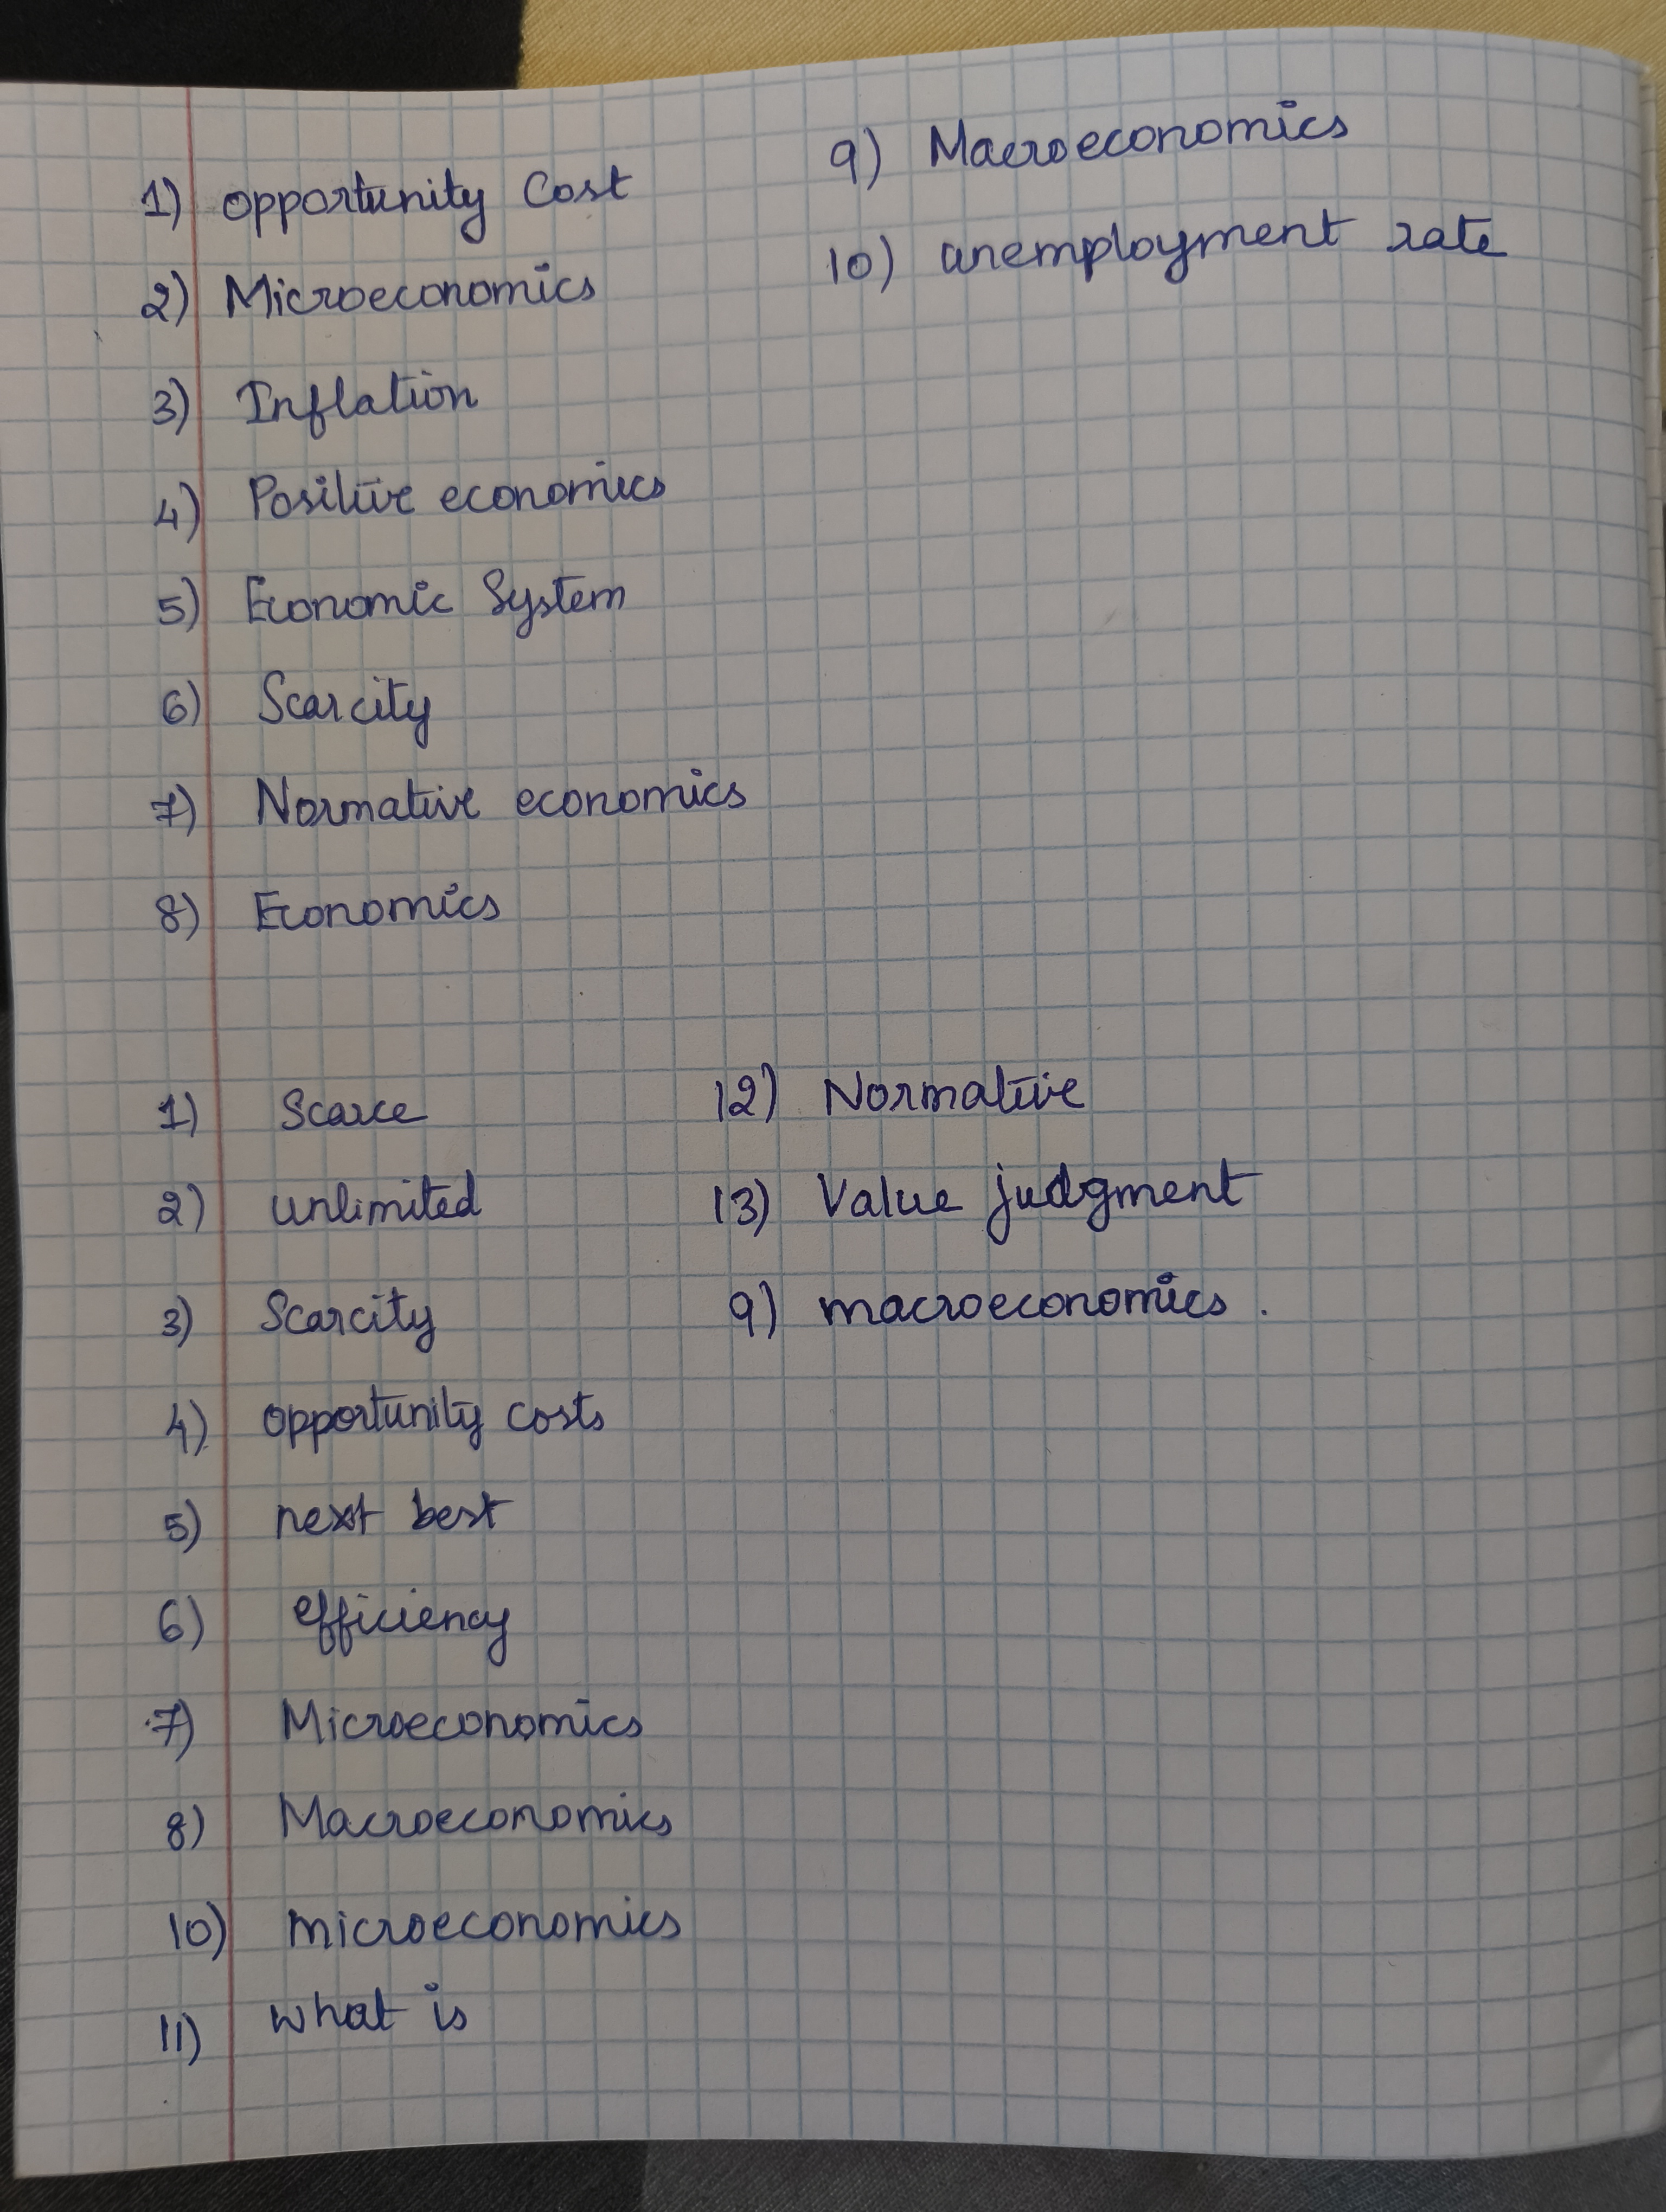 1) opportunity Cost
2) Microeconomics
3) Inflation
4) Positive economics
5) Economic System
6) Scarcity
7) Normative economics
8) Economics
9) Macroeconomics
10) unemployment rate
1) Scarce
2) unlimited
3) Scarcity
4) opportunity costs
5) next best
6) efficiency
7) Microeconomics
8) Macroeconomics
10) microeconomics
11) what is
12) Normative
13) Value judgment
9) macroeconomics.